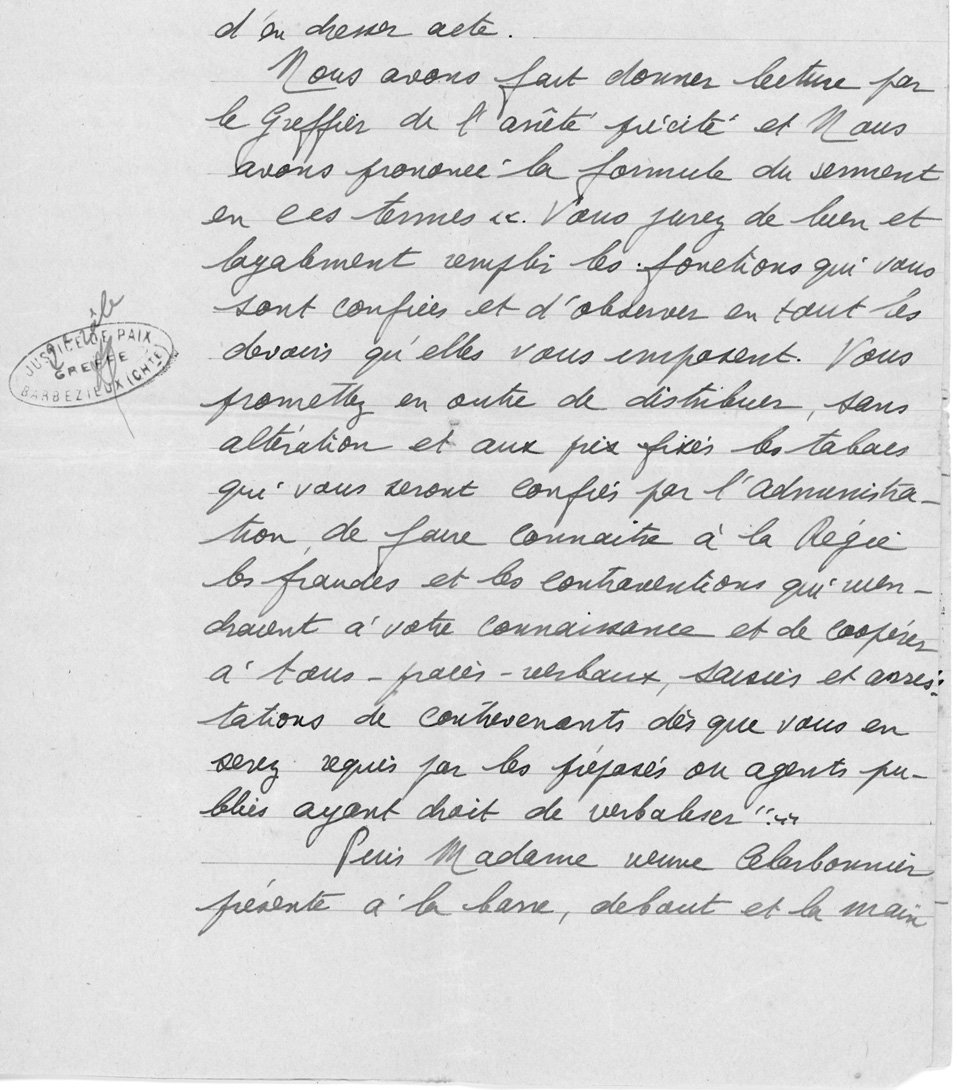 d'en dresser acte.
Nous avons fait donner lecture par
le Greffier de l'arrêté précité et Nous
avons prononcé la formule du serment
en ces termes : « Vous jurez de bien et
loyalement remplir les fonctions qui vous
sont confiées et d'observer en tout les
devoirs qu'elles vous imposent. Vous
promettez en outre de distribuer, sans
altération et aux prix fixés les tabacs
qui vous seront confiés par l'administra-
tion, de faire connaitre à la Régie
les fraudes et les contraventions qui vien-
draient à votre connaissance et de coopérer
à tous - procès - verbaux, saisies et arres-
tations de contrevenants dès que vous en
serez requis par les préposés ou agents pu-
blics ayant droit de verbaliser".
Puis Madame veuve Charbonnier
présente à la barre, debout et la main
JUSTICE DE PAIX
GREFFE
BARBEZIEUX (CHTE)